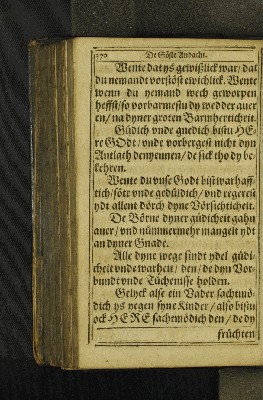 370 De Söste Andacht.
Wente dat ys gewißlick war/ dat
du nemandt vorstöst ewichlick. Wente
wenn du yemand wech geworpen
heffst/ so vorbarmestu dy wedder auer
en/ na dyner groten Barmherticheit.
Güdich vnde gnedich bistu HE-
re GODt/ vnde vorbergest nicht dyn
Antlath denyennen/ de sick tho dy be-
kehren.
Wente du vnse Godt bist warhaff-
tich/ söte vnde gedüldich/ vnd regerest
ydt allent dörch dyne Vörsichticheit.
De Börne dyner güdicheit gahn
auer/ vnd nümmermehr mangelt ydt
an dyner Gnade.
Alle dyne wege sindt ydel güdi-
cheit vnde warheit/ den/ de dyn Vor-
bundt vnde Tüchenisse holden.
Gelyck alse ein Vader sachtmö-
dich ys yegen syne Kinder/ also bistu
ock HERE sachtmödich den/ de dy
früchten